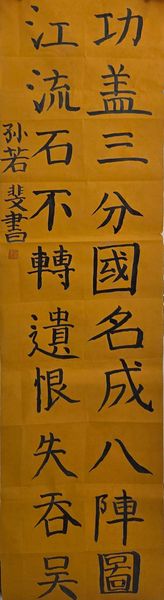 功盖三分國名成八陣圖
江流石不轉遺恨失吞吴
孙若斐書